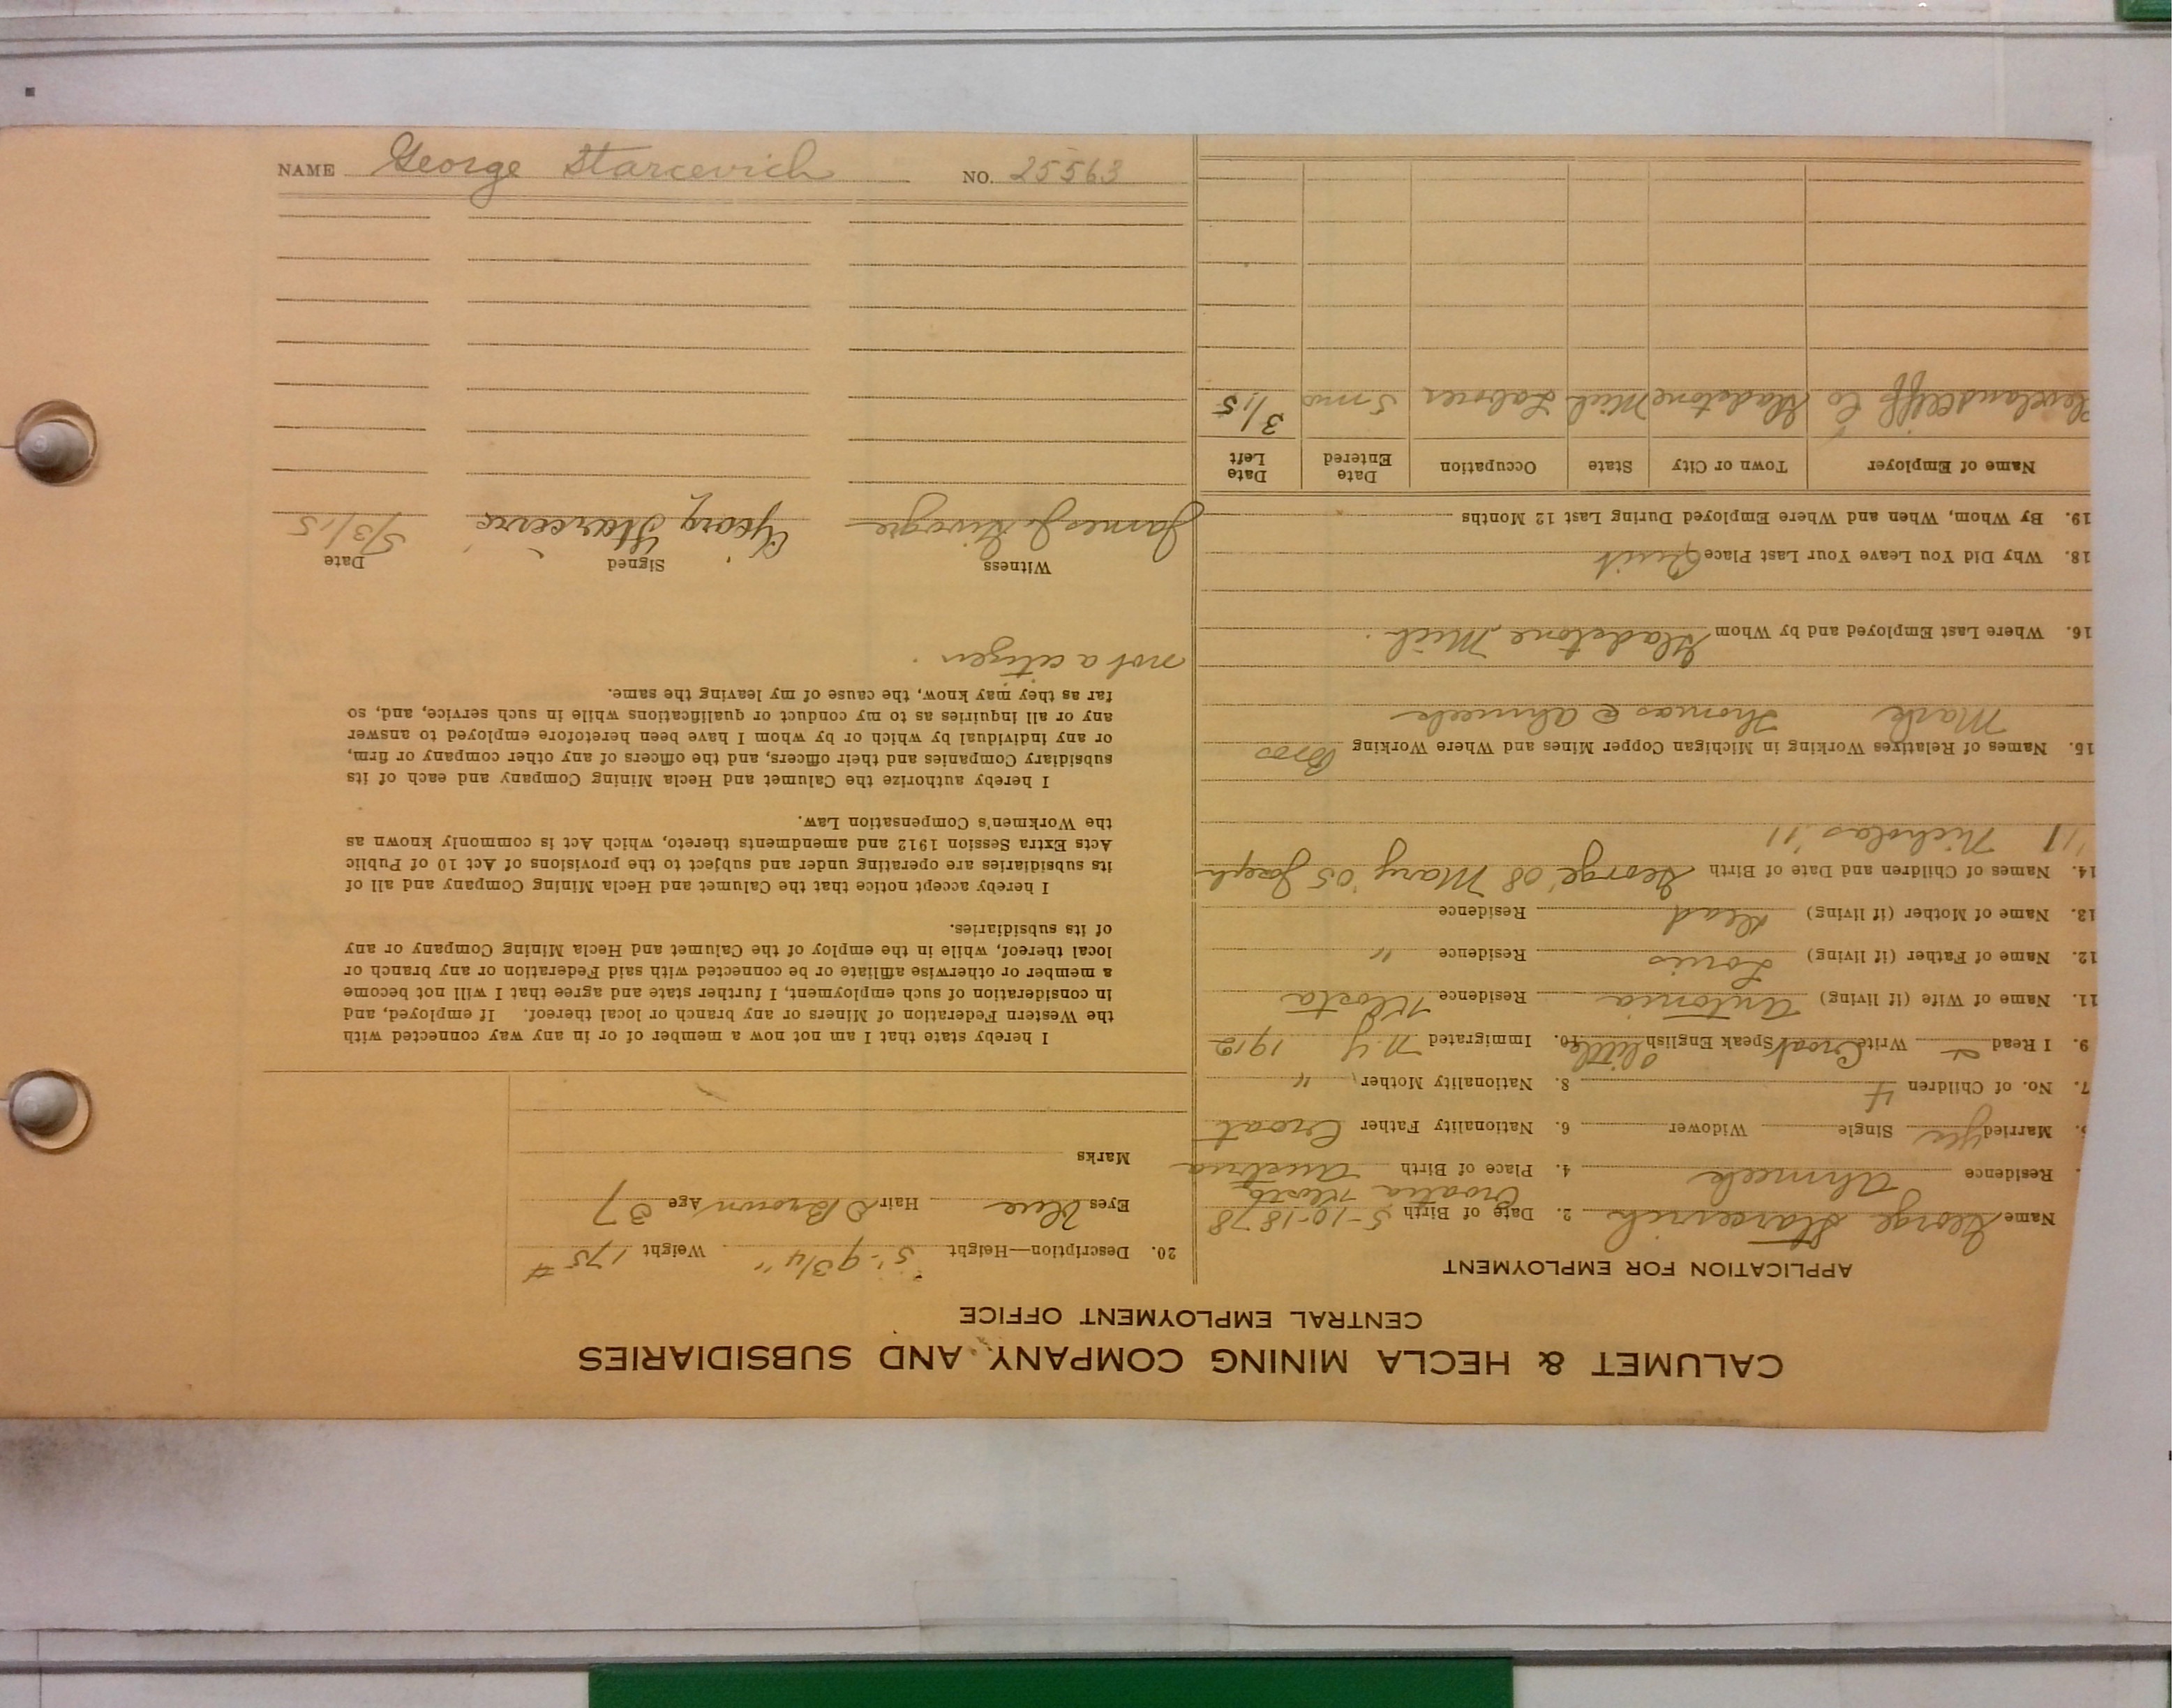 NAME George Starcevich NO. 25563
CALUMET & HECLA MINING COMPANY AND SUBSIDIARIES
CENTRAL EMPLOYMENT OFFICE
APPLICATION FOR EMPLOYMENT
Name George Starcevich 2. Date of Birth 5-10-1878
Croatia Klosta
Residence Ahmeek 4. Place of Birth Austria
Married yes Single Widower 6. Nationality Father Croat
7. No. of Children 4 8. Nationality Mother "
9. I Read Write Croat Speak English little 10. Immigrated N.Y 1912
11. Name of Wife (if living) Antonia Residence Klosta
12. Name of Father (if living) Louis Residence "
13. Name of Mother (if living) dead Residence
14. Names of Children and Date of Birth George '08 Mary '05 Joseph
'11 Nicholas '11
15. Names of Relatives Working in Michigan Copper Mines and Where Working Bros
Mark Thomas @ Ahmeek
16. Where Last Employed and by Whom Gladstone Mich.
18. Why Did You Leave Your Last Place Quit
19. By Whom, When and Where Employed During Last 12 Months
Name of Employer Town or City State Occupation Date Entered Date Left
Cleveland Cliff Co Gladstone Mich Laborer 5 mos 3/15
20. Description—Height 5'-9 3/4" Weight 175 #
Eyes blue Hair D Brown Age 37
Marks
I hereby state that I am not now a member of or in any way connected with
the Western Federation of Miners or any branch or local thereof. If employed, and
in consideration of such employment, I further state and agree that I will not become
a member or otherwise affiliate or be connected with said Federation or any branch or
local thereof, while in the employ of the Calumet and Hecla Mining Company or any
of its subsidiaries.
I hereby accept notice that the Calumet and Hecla Mining Company and all of
its subsidiaries are operating under and subject to the provisions of Act 10 of Public
Acts Extra Session 1912 and amendments thereto, which Act is commonly known as
the Workmen's Compensation Law.
I hereby authorize the Calumet and Hecla Mining Company and each of its
subsidiary Companies and their officers, and the officers of any other company or firm,
or any individual by which or by whom I have been heretofore employed to answer
any or all inquiries as to my conduct or qualifications while in such service, and, so
far as they may know, the cause of my leaving the same.
not a citizen.
Witness Signed Date
James J. Georg Starcevic 5/3/15